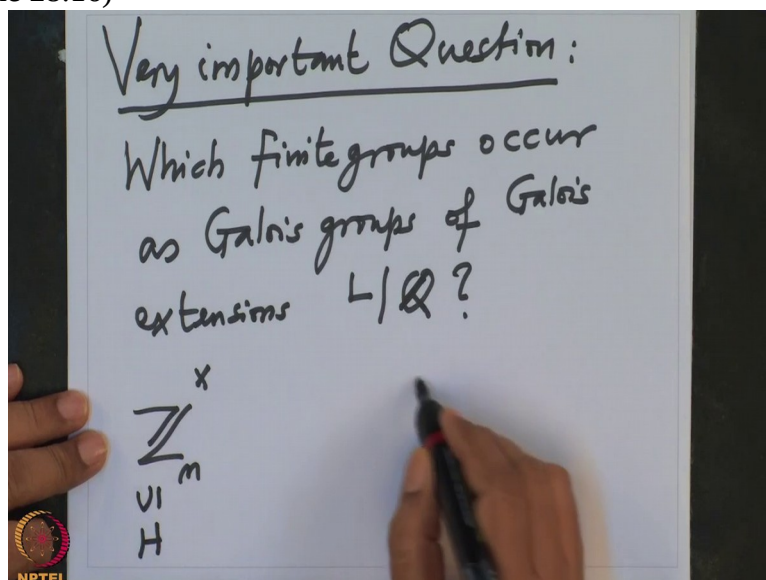 Very important Question:
Which finite groups occur
as Galois groups of Galois
extensions L|ℚ?
ℤₘˣ
∪|
H
NPTEL